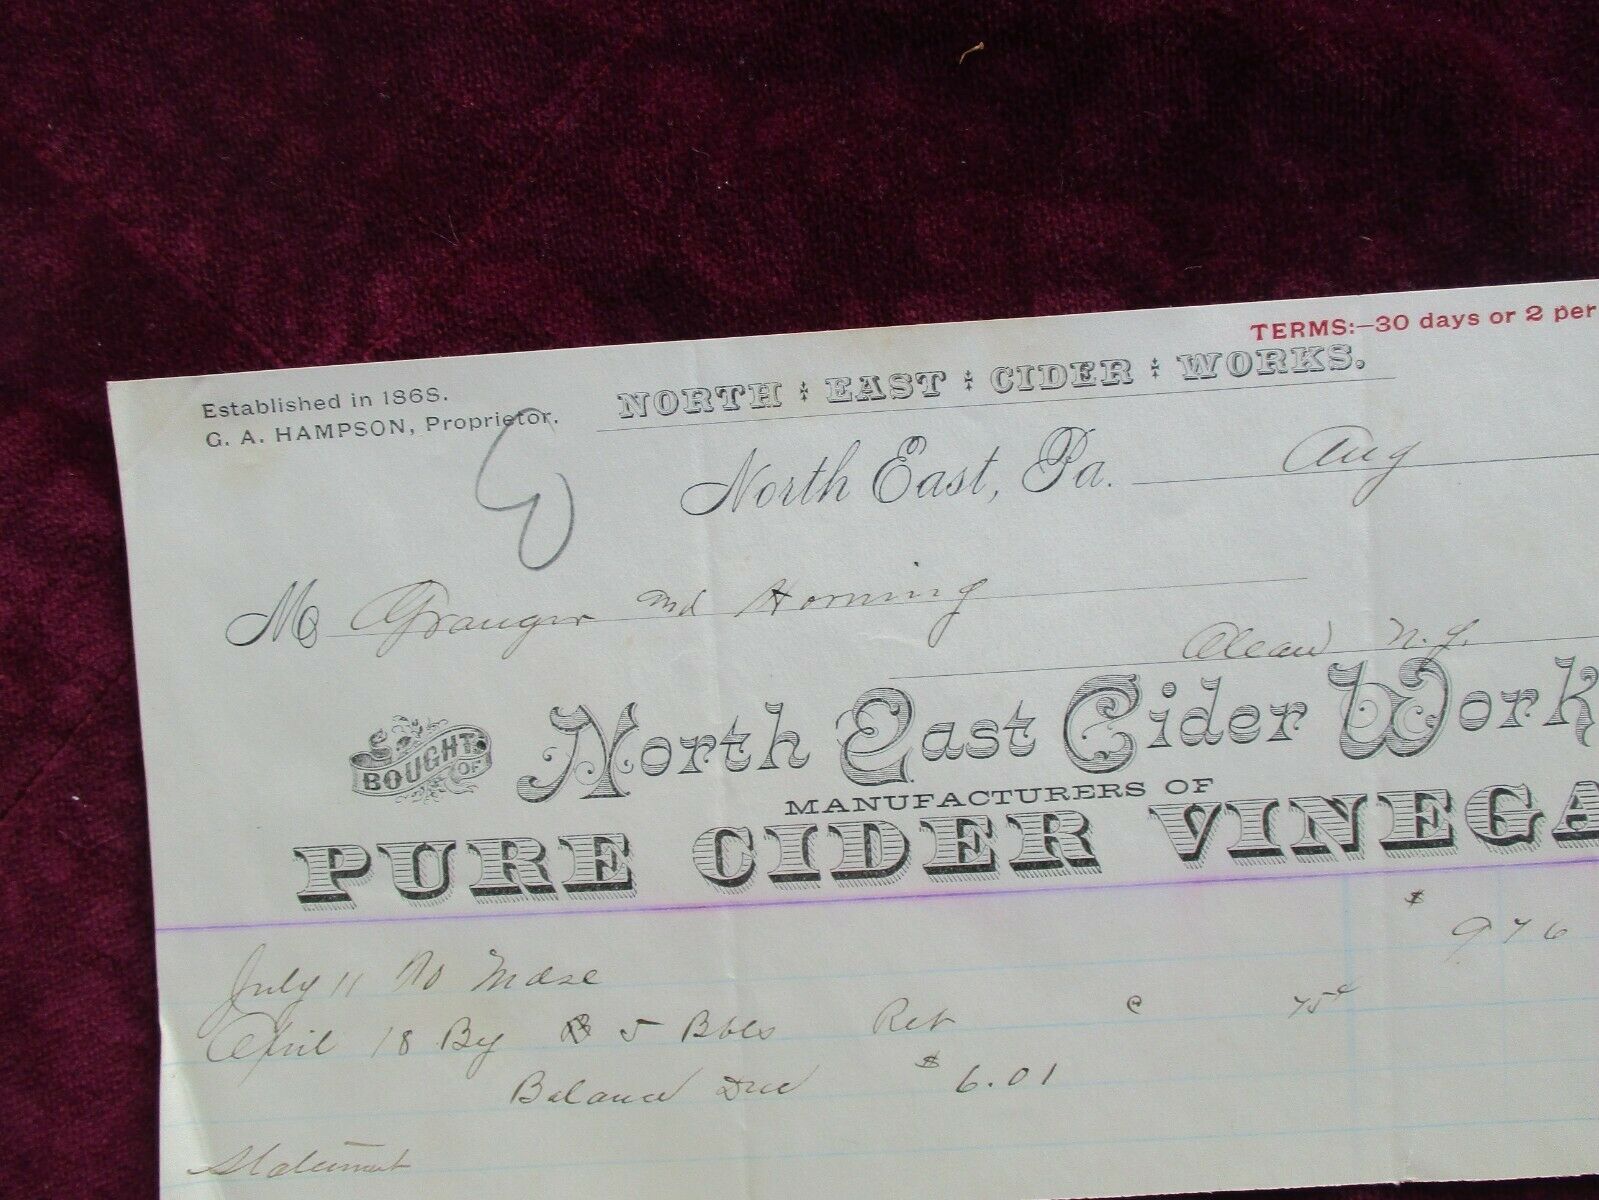 TERMS:—30 days or 2 per
Established in 1868.
G. A. HAMPSON, Proprietor.
NORTH EAST CIDER WORKS.
North East, Pa. Aug
M Granger and Horning
Olean N.Y.
BOUGHT OF
North East Cider Work
MANUFACTURERS OF
PURE CIDER VINEGA
$
July 11 To Mdse 9 76
April 18 By 5 Bbls Ret @ 75¢
Balance Due $6.01
Statement